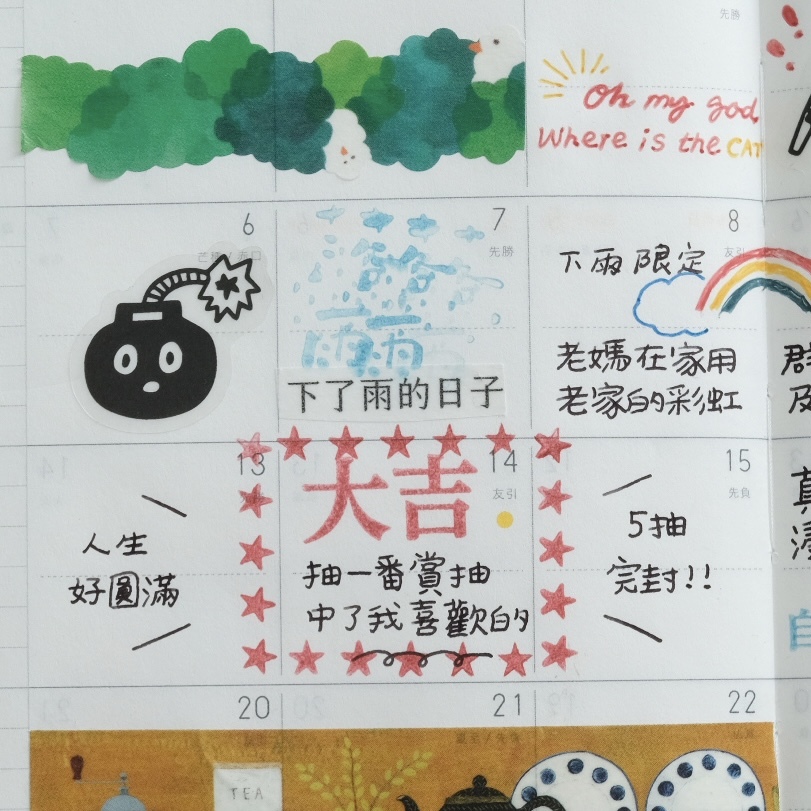 先勝
Oh my god
Where is the CAT
6
7
8
先勝
友引
下雨限定
老媽在家用
老家的彩虹
下了雨的日子
13
14
15
友引
先負
大吉
人生
好圓滿
抽一番賞抽
中了我喜歡的
5抽
完封!!
20
21
22
TEA